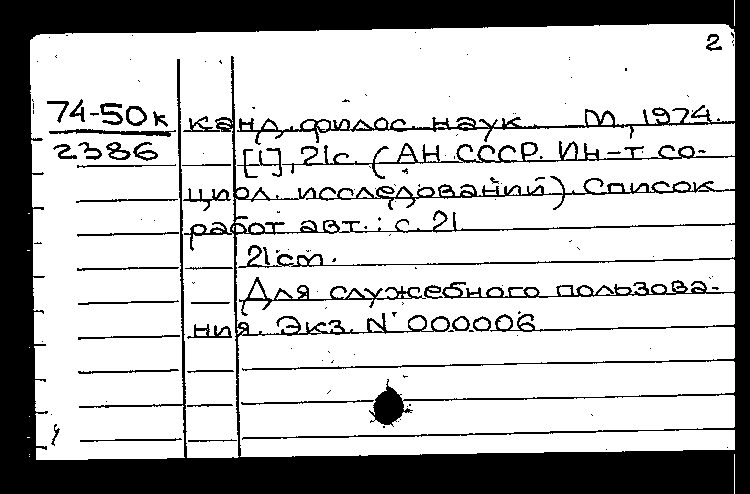 2
74-50к
2386
канд. филос. наук. М., 1974.
[1], 21с. (АН СССР. Ин-т со-
циол. исследований). Список
работ авт.: с. 21
21см.
Для служебного пользова-
ния. Экз. N 000006